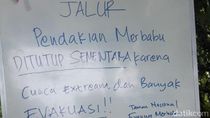 JALUR
Pendakian Merbabu
DITUTUP SEMENTARA karena
Cuaca Extream dan Banyak
EVAKUASI!!
Taman Nasional
Gunung Merbabu
detikcom